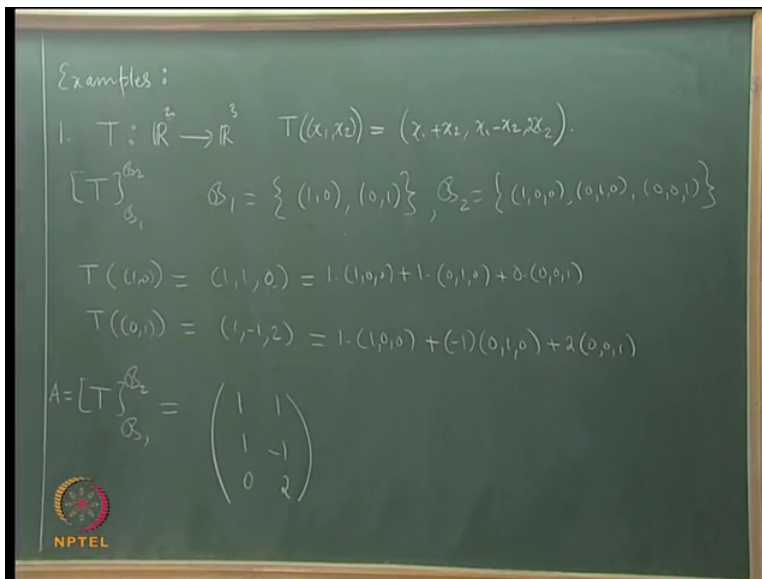 Examples:
1. T: ℝ² → ℝ³ T((x₁,x₂)) = (x₁+x₂, x₁-x₂, 2x₂).
[T]_{ℬ₁}^{ℬ₂} ℬ₁ = { (1,0), (0,1)}, ℬ₂ = { (1,0,0), (0,1,0), (0,0,1)}
T((1,0)) = (1,1,0) = 1·(1,0,0) + 1·(0,1,0) + 0·(0,0,1)
T((0,1)) = (1,-1,2) = 1·(1,0,0) + (-1)(0,1,0) + 2(0,0,1)
A = [T]_{ℬ₁}^{ℬ₂} =
1 1
1 -1
0 2
NPTEL